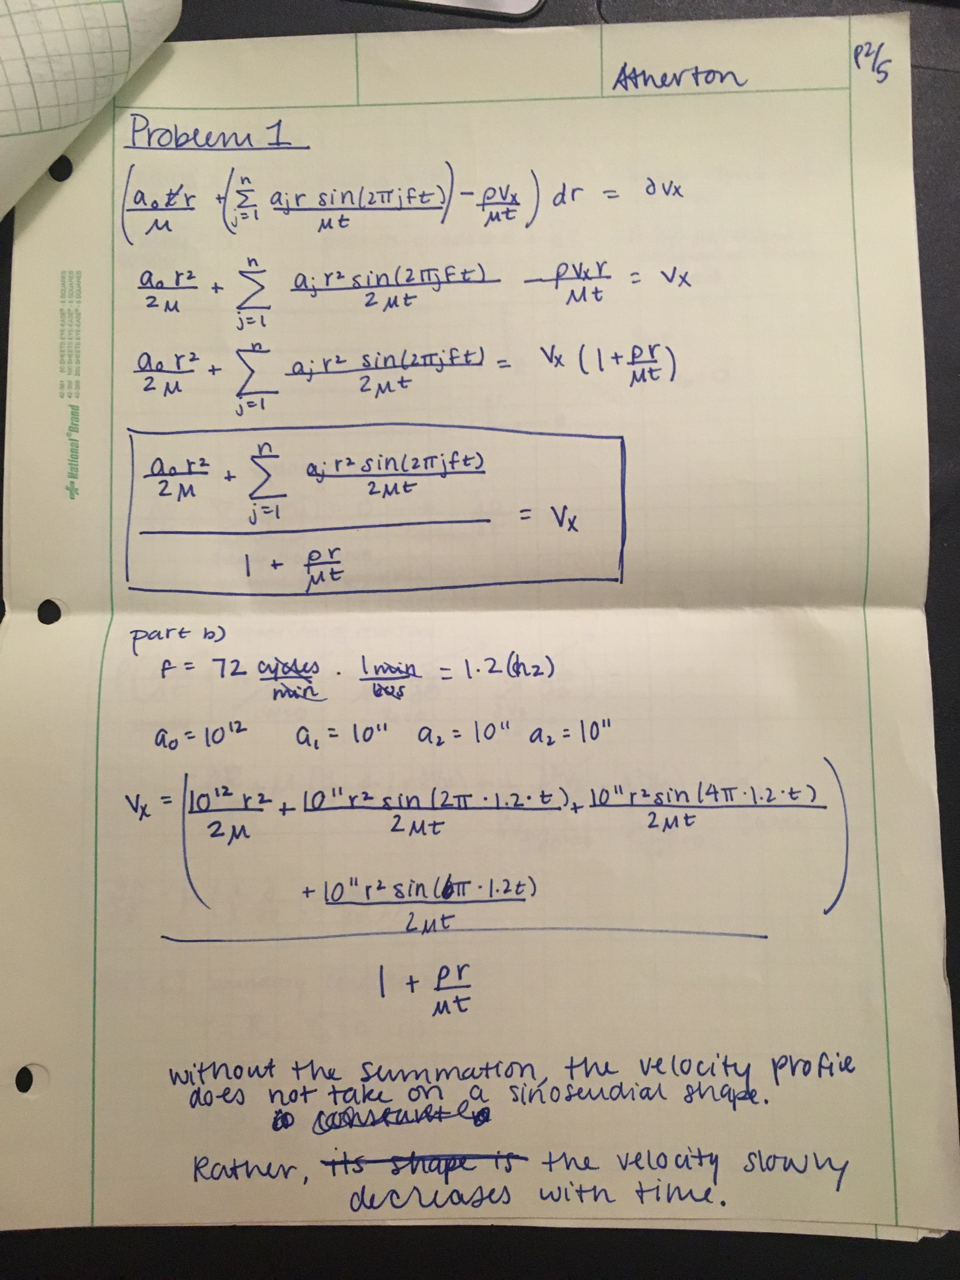 Atherton
P2/5
Problem 1
(a₀tr/μ + (∑_{j=1}^{n} aⱼr sin(2πjft)/μt) - ρVx/μt) dr = ∂Vx
a₀r²/2μ + ∑_{j=1}^{n} aⱼr² sin(2πjft)/2μt - ρVxr/μt = Vx
a₀r²/2μ + ∑_{j=1}^{n} aⱼr² sin(2πjft)/2μt = Vx (1 + ρr/μt)
(a₀r²/2μ + ∑_{j=1}^{n} aⱼr² sin(2πjft)/2μt) / (1 + ρr/μt) = Vx
part b)
f = 72 cycles/min · 1min/60s = 1.2 (hz)
a₀ = 10¹² a₁ = 10¹¹ a₂ = 10¹¹ a₂ = 10¹¹
Vx = (10¹²r²/2μ + 10¹¹r² sin(2π·1.2·t)/2μt + 10¹¹r² sin(4π·1.2·t)/2μt
+ 10¹¹r² sin(6π·1.2t)/2μt)
1 + ρr/μt
without the summation, the velocity profile
does not take on a sinosendial shape.
Rather, its shape is the velocity slowly
decreases with time.
National®Brand